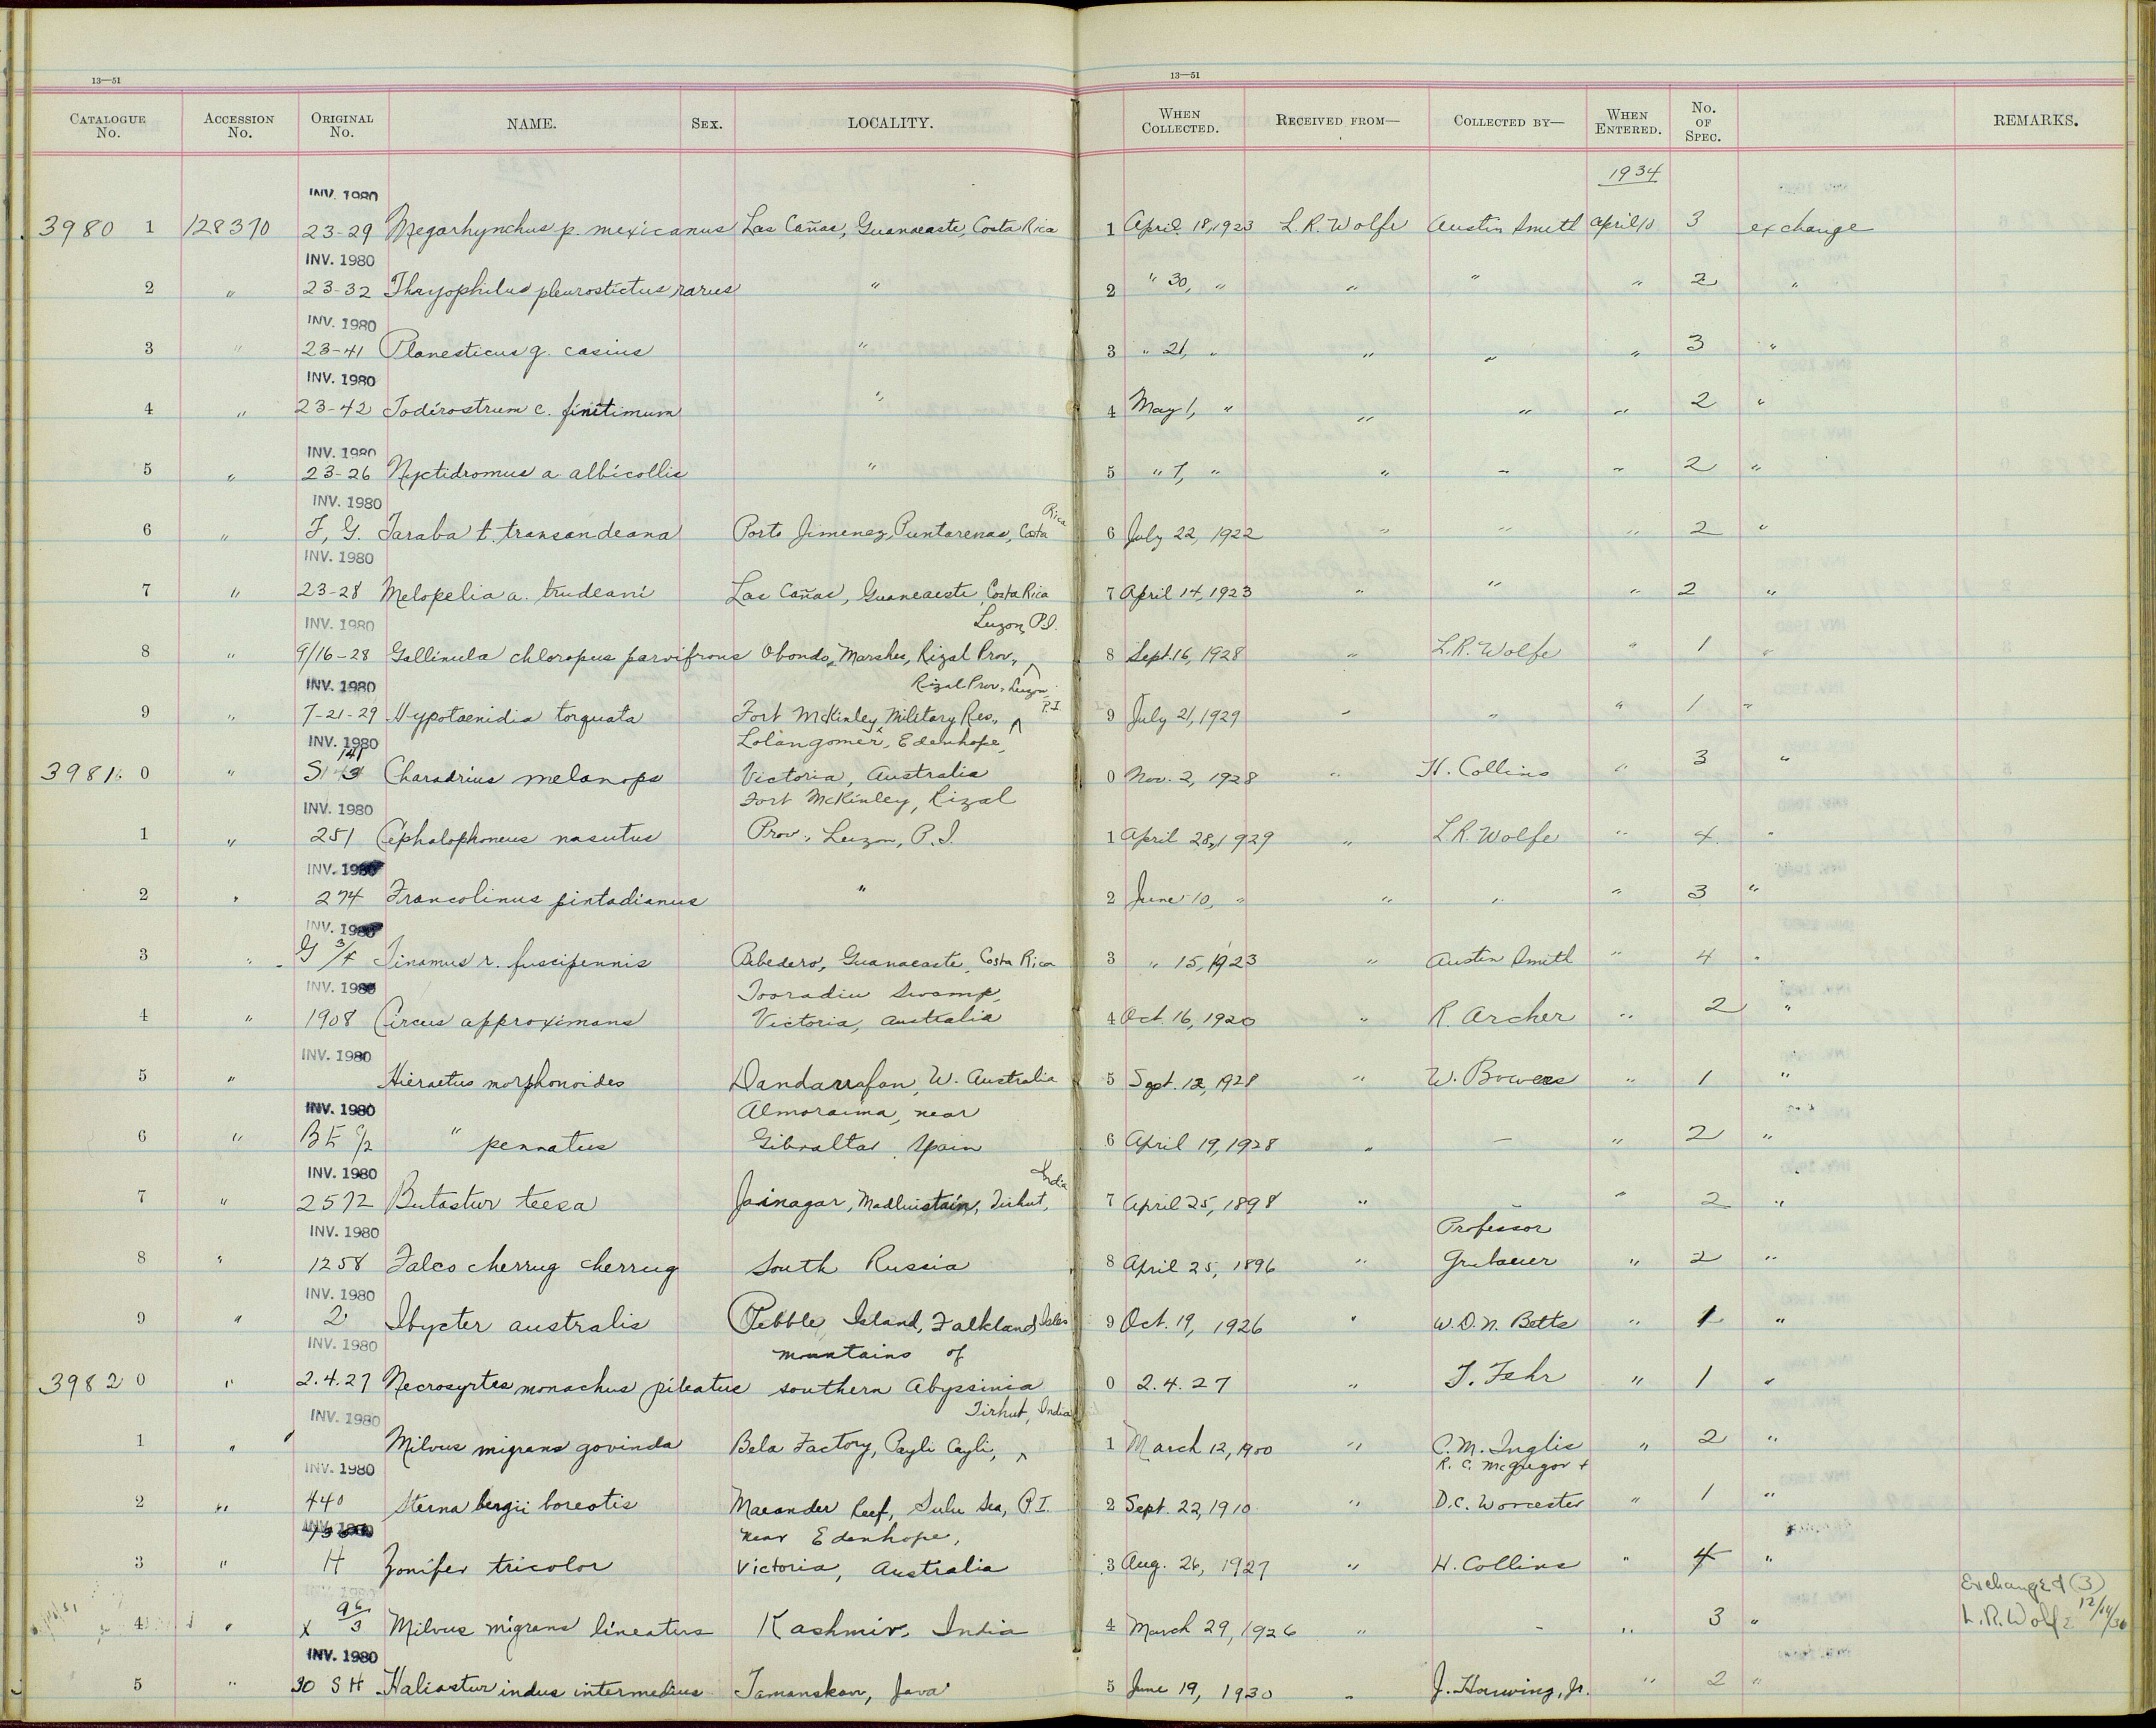 13—51 13—51
CATALOGUE No. ACCESSION No. ORIGINAL No. NAME. SEX. LOCALITY. WHEN COLLECTED. RECEIVED FROM— COLLECTED BY— WHEN ENTERED. No. OF SPEC. REMARKS.
1934
INV. 1980
3980 1 128370 23-29 Megarhynchus p. mexicanus Las Cañas, Guanacaste, Costa Rica 1 April 18, 1923 L.R. Wolfe Austin Smith April 10 3 exchange
INV. 1980
2 " 23-32 Thryophilus pleurostictus rarus " 2 " 30, " " " " 2 "
INV. 1980
3 " 23-41 Planesticus g. casius " 3 " 21, " " " " 3 "
INV. 1980
4 " 23-42 Todirostrum c. finitimum " 4 May 1, " " " " 2 "
INV. 1980
5 " 23-26 Nyctidromus a albicollis " 5 " 7, " " " " 2 "
INV. 1980
6 " F, G. Taraba t. transandeana Porto Jimenez, Puntarenas, Costa Rica 6 July 22, 1922 " " " 2 "
INV. 1980
7 " 23-28 Melopelia a. trudeani Las Cañas, Guanacaste, Costa Rica 7 April 14, 1923 " " " 2 "
INV. 1980
8 " 9/16-28 Gallinula chloropus parvifrons Obondo, Marshes, Rizal Prov., Luzon, P.I. 8 Sept. 16, 1928 " L.R. Wolfe " 1 "
INV. 1980
9 " 7-21-29 Hypotaenidia torquata Fort McKinley Military Res., Rizal Prov., Luzon, P.I. 9 July 21, 1929 " " " 1 "
INV. 1980 Lolangomer, Edenhope,
3981 0 " 141 Charadrius melanops Victoria, Australia 0 Nov. 2, 1928 " H. Collins " 3 "
INV. 1980 Fort McKinley, Rizal
1 " 251 Cephalophoneus nasutus Prov., Luzon, P.I. 1 April 28, 1929 " L.R. Wolfe " 4 "
INV. 1980
2 " 274 Francolinus pintadianus " 2 June 10, " " " " 3 "
INV. 1980
3 " G 3/4 Tinamus r. fuscipennis Bebedero, Guanacaste, Costa Rica 3 " 15, 1923 " Austin Smith " 4 "
INV. 1980 Tooradin Swamp,
4 " 1908 Circus approximans Victoria, Australia 4 Oct. 16, 1920 " R. Archer " 2 "
INV. 1980
5 " Hieraetus morphonoides Dandarrafan, W. Australia 5 Sept. 12, 1928 " W. Bowers " 1 "
INV. 1980 Almoraima, near
6 " BE /2 " pennatus Gibraltar, Spain 6 April 19, 1928 " — " 2 "
INV. 1980
7 " 2572 Butastur teesa Jainagar, Madluistain, Tirhut, India 7 April 25, 1898 " – " 2 "
INV. 1980 Professor
8 " 1258 Falco cherrug cherrug South Russia 8 April 25, 1896 " Grubauer " 2 "
INV. 1980
9 " 2 Ibycter australis Pebble Island, Falkland Isles 9 Oct. 19, 1926 " W.D.N. Betts " 1 "
INV. 1980 mountains of
3982 0 " 2.4.27 Necrosyrtes monachus pileatus southern Abyssinia 0 2.4.27 " T. Fehr " 1 "
INV. 1980
1 " Milvus migrans govinda Bela Factory, Payli Cayli, Tirhut, India 1 March 12, 1900 " C.M. Inglis " 2 "
INV. 1980 R. C. McGregor +
2 " 440 Sterna bergii boreotis Maeander Reef, Sulu Sea, P.I. 2 Sept. 22, 1910 " D.C. Worcester " 1 "
INV. 1980 near Edenhope,
3 " H Zonifer tricolor Victoria, Australia 3 Aug. 26, 1927 " H. Collins " 4 "
4 " x 96/3 Milvus migrans lineatus Kashmir, India 4 March 29, 1926 " – " 3 " Exchanged (3) L.R. Wolfe 12/14/36
INV. 1980
5 " 30 SH Haliastur indus intermedius Tamanskan, Java 5 June 19, 1930 " J. Houwing, Jr. " 2 "